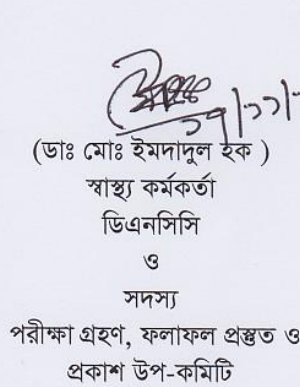 (ডাঃ মোঃ ইমদাদুল হক )
স্বাস্থ্য কর্মকর্তা
ডিএনসিসি
ও
সদস্য
পরীক্ষা গ্রহণ, ফলাফল প্রস্তুত ও
প্রকাশ উপ-কমিটি